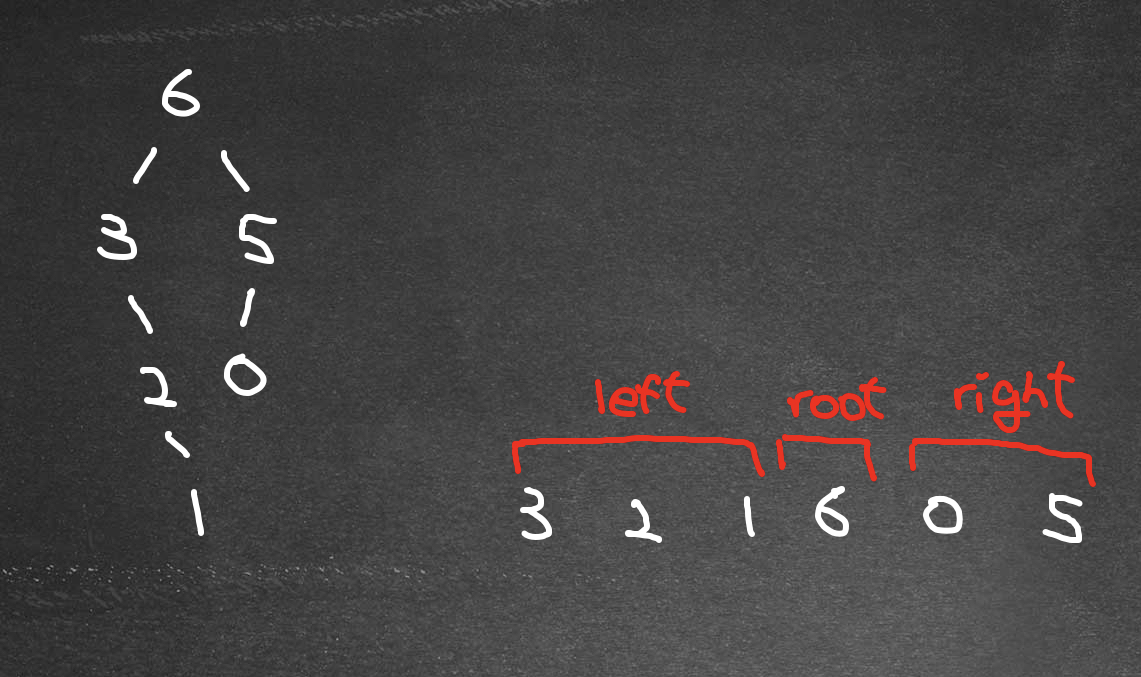 6
3 5
2 0
1
left root right
3 2 1 6 0 5